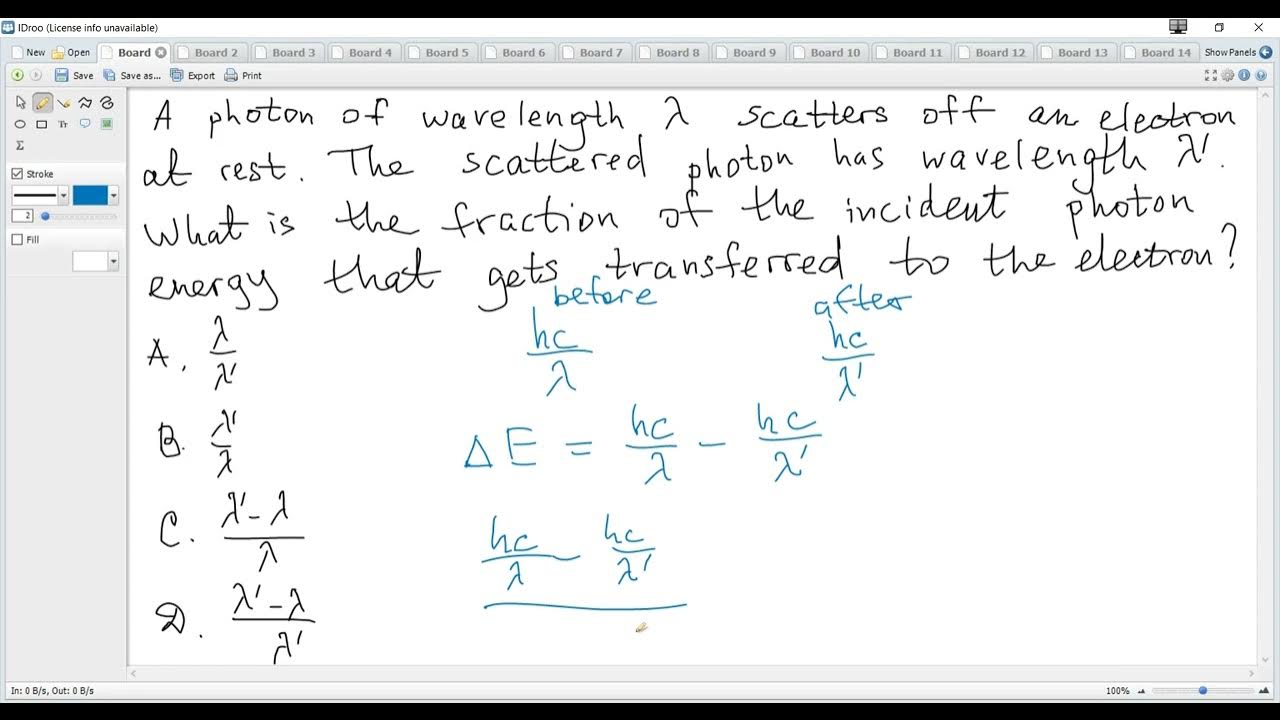 IDroo (License info unavailable)
New Open Board Board 2 Board 3 Board 4 Board 5 Board 6 Board 7 Board 8 Board 9 Board 10 Board 11 Board 12 Board 13 Board 14 Show Panels
Save Save as... Export Print
Tr
Σ
Stroke
2
Fill
A photon of wavelength λ scatters off an electron
at rest. The scattered photon has wavelength λ'.
What is the fraction of the incident photon
energy that gets transferred to the electron?
before after
hc/λ hc/λ'
A. λ/λ'
B. λ'/λ
ΔE = hc/λ - hc/λ'
C. (λ'-λ)/λ
hc/λ - hc/λ'
D. (λ'-λ)/λ'
In: 0 B/s, Out: 0 B/s 100%